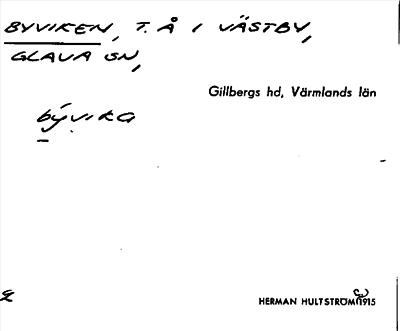 BYVIKEN, T. Å I VÄSTBY,
GLAVA SN,
Gillbergs hd, Värmlands län
bývika
HERMAN HULTSTRÖM 1915